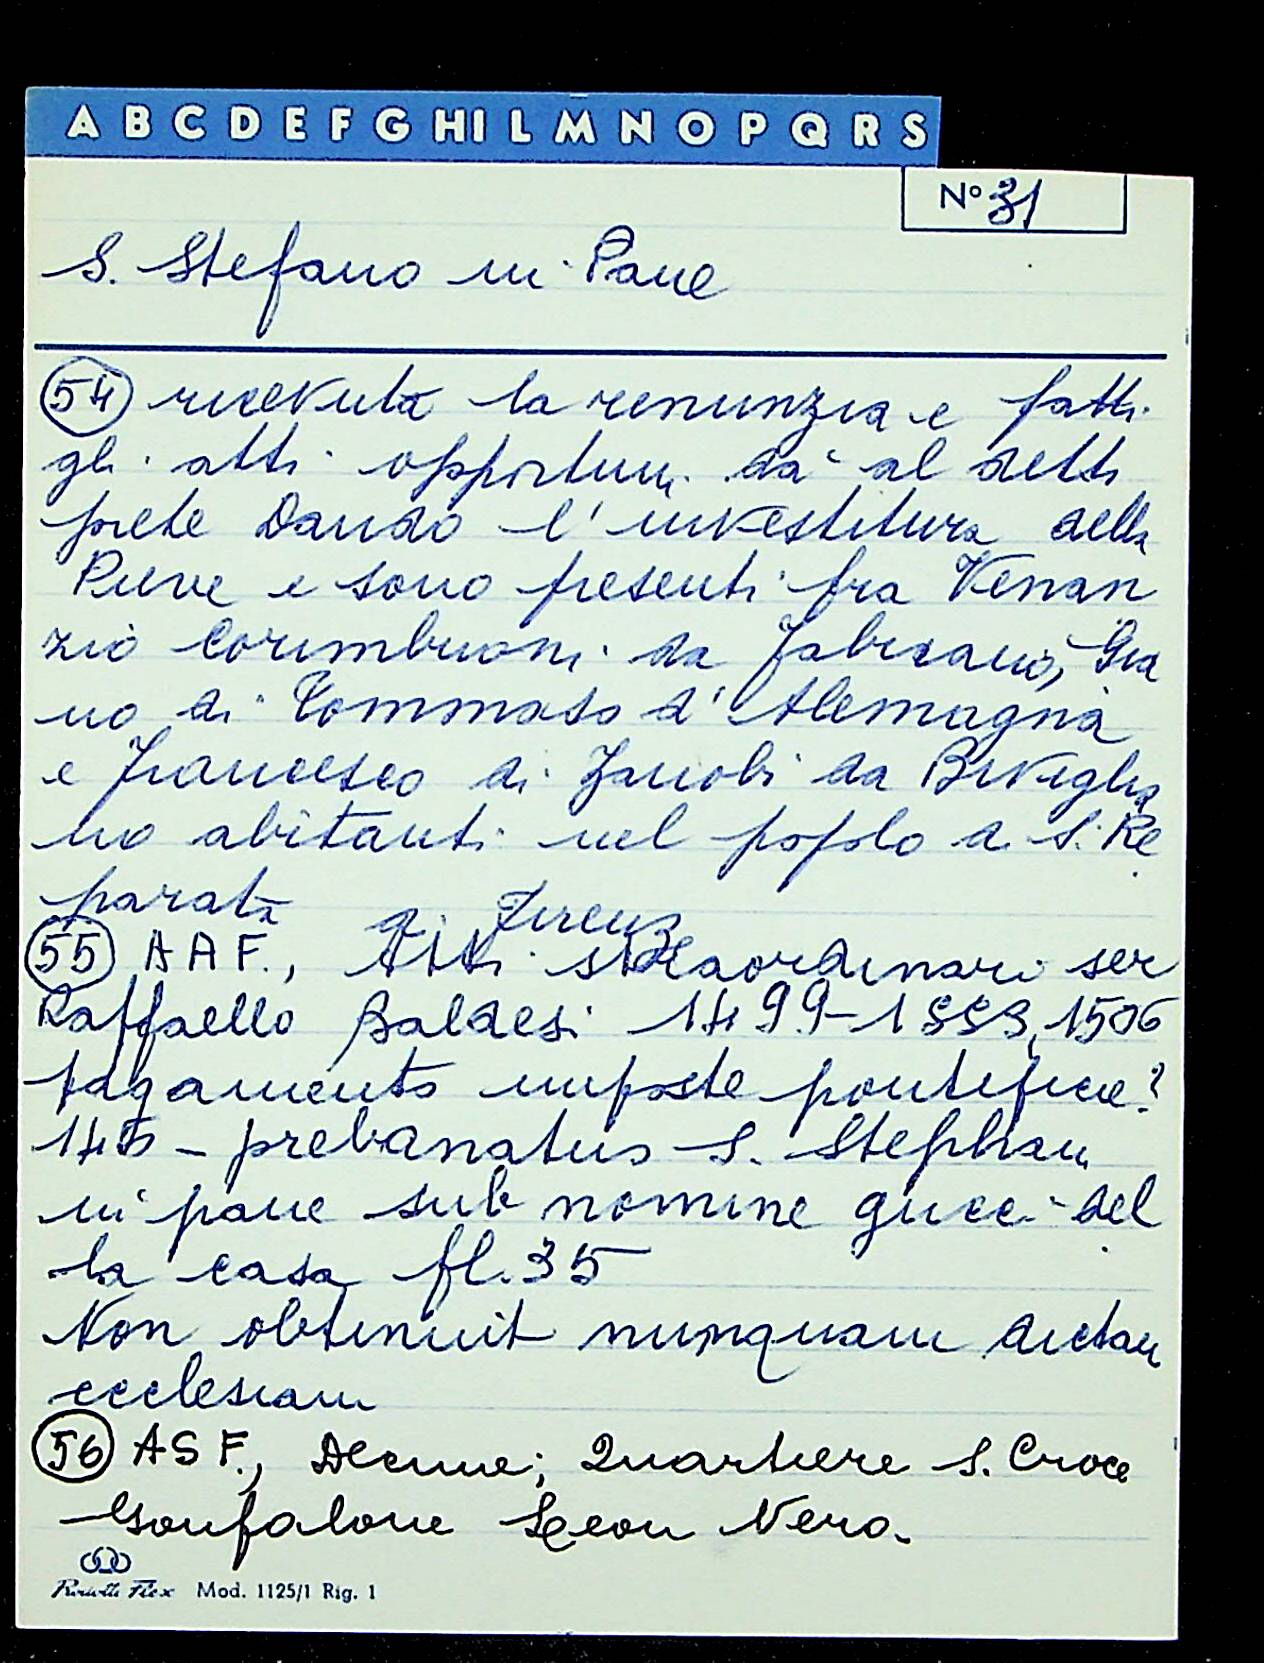 A B C D E F G HI L M N O P Q R S
N° 31
S. Stefano in Pane
54 ricevuta la renunzia e fatti
gli atti opportuni dà al detto
prete Dando l'investitura della
Pieve e sono presenti fra Venan
zio Corimbuoni da Fabriano, Gia
no di Tommaso d'Alemagna
e Francesco di Zanobi da Biviglia
no abitanti nel popolo di S. Re
parata di Firenz
55 A A F., Atti straordinari ser
Raffaello Baldesi 1499-1 1506
pagamento imposte pontificie?
prebanatus S. Stephani
in pane sub nomine gucci del
la casa fl. 35
Non obtinuit numquam dictam
ecclesiam
56 A S F., Decime; Quartiere S. Croce
Gonfalone Leon Nero.
Flex Mod. 1125/1 Rig. 1